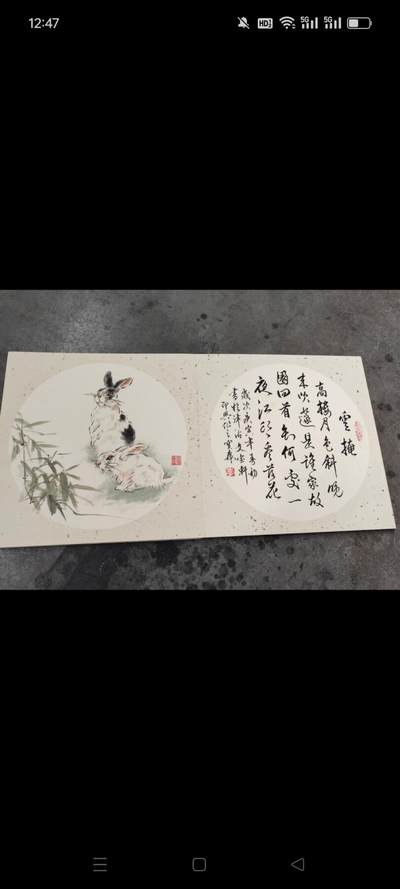 12:47
HD
5G
5G
雲掩
高樓月色斜晚
來吹遍是誰家故
園回首知何處一
夜江落花
歲次庚寅年春初
書於津沽文寶軒